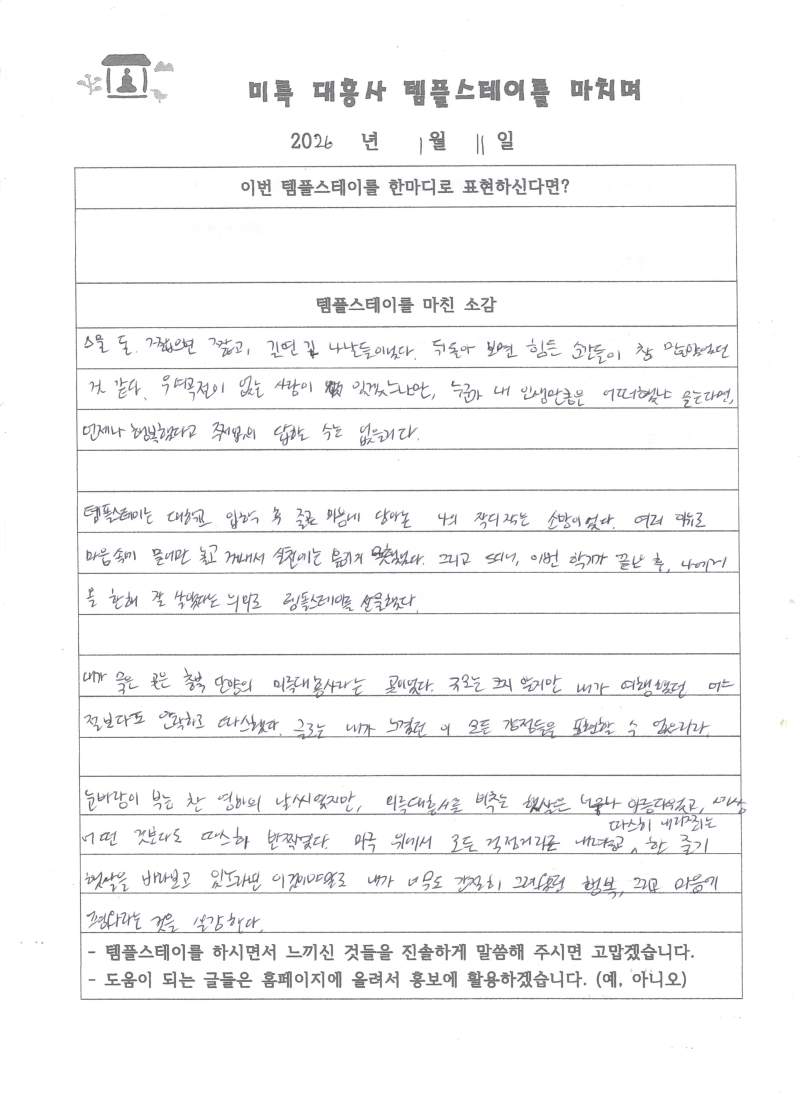 미륵 대흥사 템플스테이를 마치며
2026 년 1월 11일
이번 템플스테이를 한마디로 표현하신다면?
템플스테이를 마친 소감
스물 둘. 짧으면 짧고, 길면 긴 나날들이었다. 뒤돌아 보면 힘든 순간들이 참 많았었던
것 같다. 우여곡절이 없는 사람이 있겠느냐만, 누군가 내 인생만큼은 어떠했냐 묻는다면,
언제나 행복했다고 답할 수는 없으리다.
템플스테이는 대학교 입학 후 줄곧 마음에 담아둔 나의 작디작은 소망이었다. 여러 이유로
마음속에 묻어만 놓고 꺼내서 실천에는 옮기지 못했었다. 그리고 이번 학기가 끝난 후, 나에게
한 해 잘 살았다는 의미로 템플스테이를 선물했다.
내가 묵은 곳은 충북 단양의 미륵대흥사라는 곳이었다. 규모는 크지 않지만 내가 여행했던 어느
절보다도 안락하고 따스했다. 글로는 내가 느꼈던 이 모든 감정들을 표현할 수 없으리라.
눈바람이 부는 찬 영하의 날씨였지만, 미륵대흥사를 비추는 햇살은 너무나 아름다웠고, 세상
어떤 것보다도 따스하게 반짝였다. 마루 위에서 모든 걱정거리를 내려놓고 따스히 내리쬐는 한 줄기
햇살을 바라보고 있노라면 이것이야말로 내가 너무도 간절히 그려왔던 행복, 그리고 마음의
평화라는 것을 실감한다.
- 템플스테이를 하시면서 느끼신 것들을 진솔하게 말씀해 주시면 고맙겠습니다.
- 도움이 되는 글들은 홈페이지에 올려서 홍보에 활용하겠습니다. (예, 아니오)